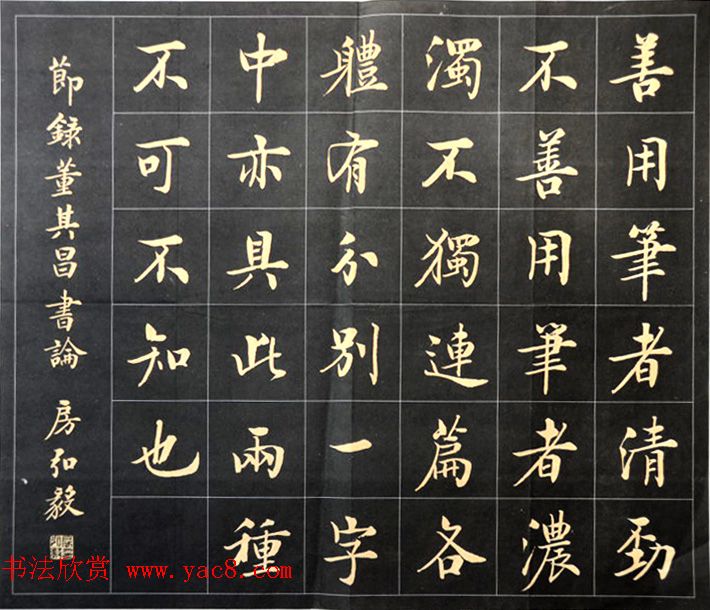 善用筆者清勁
不善用筆者濃
濁不獨連篇各
軆有分別一字
中亦具此兩種
不可不知也
節錄董其昌書論 房弘毅
书法欣赏 www.yac8.com